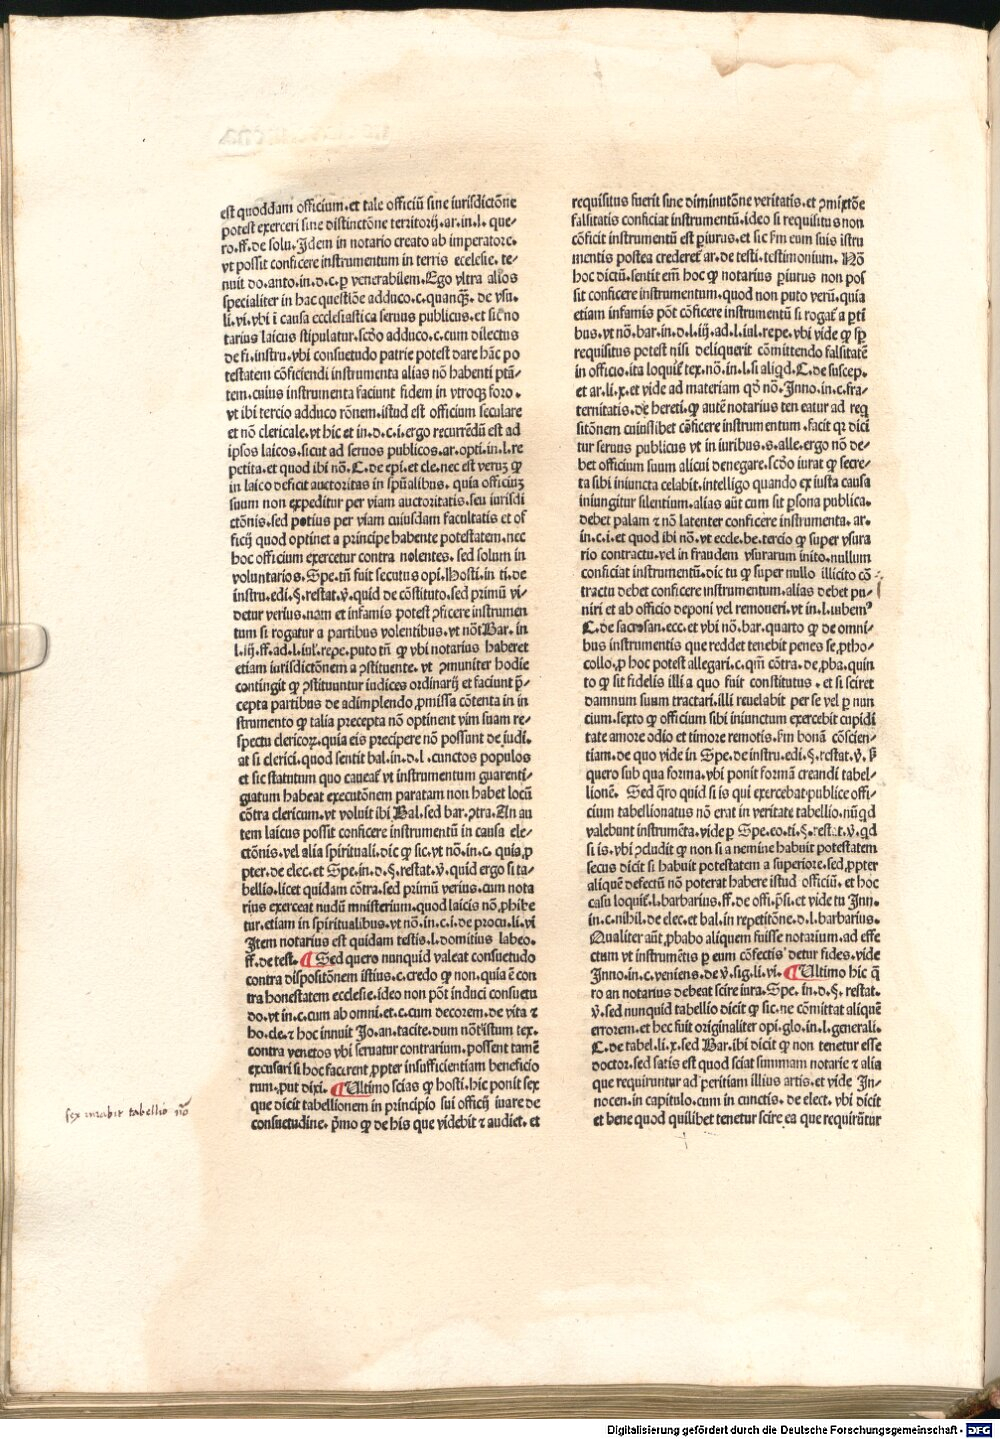 est quoddam officium.et tale officiū sine iurisdictōne
potest exerceri sine distinctōne territorij.ar.in.l. que-
ro.ff.de solu.Idem in notario creato ab imperatore.
vt possit conficere instrumentum in terris ecclesie. te-
nuit do.anto.in.d.c.ꝑ venerabilem.Ego vltra alios
specialiter in hac questiōe adduco.c.quanqȝ. de vsu.
li.vi.vbi ī causa ecclesiastica seruus publicus.et sic no
tarius laicus stipulatur.scdo adduco.c.cum dilectus
de fi.instru.vbi consuetudo patrie potest dare hāc po
testatem cōficiendi instrumenta alias nō habenti ptā-
tem.cuius instrumenta faciunt fidem in vtroqȝ foro.
vt ibi tercio adduco rōnem.istud est officium seculare
et nō clericale.vt hic et in.d.c.i.ergo recurrēdū est ad
ipsos laicos.sicut ad seruos publicos.ar.opti.in.l.re
petita.et quod ibi nō.C.de epi.et cle.nec est verum ꝙ
in laico deficit auctoritas in spūalibus. quia officium
suum non expeditur per viam auctoritatis.seu iurisdi
ctōnis.sed potius per viam cuiusdam facultatis et of
ficij quod optinet a principe habente potestatem.nec
hoc officium exercetur contra nolentes. sed solum in
voluntarios.Spe.tn̄ fuit secutus opi.Hosti.in ti.de
instru.edi.§.restat.ꝟ.quid de cōstituto.sed primū vi-
detur verius.nam et infamis potest ꝯficere instrumen
tum si rogatur a partibus volentibus.vt nōt Bar. in
l.iij.ff.ad.l.iul.repe.puto tn̄ ꝙ vbi notarius haberet
etiam iurisdictōnem a ꝯstituente. vt ꝯmuniter hodie
contingit ꝙ ꝯstituuntur iudices ordinarij et faciunt p̄-
cepta partibus de adimplendo ꝓmissa cōtenta in in
strumento ꝙ talia precepta nō optinent vim suam re-
spectu clericoꝝ.quia eis precipere nō possunt de iudi.
at si clerici.quod sentit bal.in.d.l.cunctos populos
et sic statutum quo caueat᷑ vt instrumentum guarenti-
giatum habeat executōnem paratam non habet locū
cōtra clericum.vt voluit ibi Bal.sed bar.ꝯtra.An au
tem laicus possit conficere instrumentū in causa ele-
ctōnis.vel alia spirituali.dic ꝙ sic.vt nō.in.c. quia ꝓ
pter.de elec.et Spe.in.d.§.restat.ꝟ.quid ergo si ta-
bellio.licet quidam cōtra.sed primū verius.cum nota
rius exerceat nudū mnisterium.quod laicis nō ꝓhibe
tur.etiam in spiritualibus.vt nō.in.c.i.de procu.li.vi
Item notarius est quidam testis.l.domitius labeo.
ff.de test. ¶ Sed quero nunquid valeat consuetudo
contra dispositōnem istius.c.credo ꝙ non.quia ē con
tra honestatem ecclesie.ideo non pōt induci consuetu
do.vt in.c.cum ab omni.et.c.cum decorem.de vita ⁊
ho.cle.⁊ hoc innuit Jo.an.tacite.dum nōt istum tex.
contra venetos vbi seruatur contrarium.possent tamē
excusari si hoc facerent ꝓpter insufficientiam beneficio
rum.put dixi. ¶ Ultimo scias ꝙ hosti.hic ponit sex
que dicit tabellionem in principio sui officij iurare de
consuetudine. p̄mo ꝙ de his que videbit ⁊ audiet. et
sex iurabit tabellio nō
requisitus fuerit sine diminutōne veritatis.et ꝯmixtōe
falsitatis conficiat instrumentū.ideo si requisitus non
cōficit instrumentū est ꝑiurus.et sic fm eum suis istru
mentis postea crederet᷑ ar.de testi.testimonium. Nō
hoc dictū.sentit em̄ hoc ꝙ notarius ꝑiurus non pos
sit conficere instrumentum.quod non puto verū.quia
etiam infamis pōt cōficere instrumentū si rogat᷑ a ꝑti
bus.vt nō.bar.in.d.l.iij.ad.l.iul.repe.vbi vide ꝙ sꝑ
requisitus potest nisi deliquerit cōmittendo falsitatē
in officio.ita loquit᷑ tex.nō.in.l.si aliqd.C.de suscep.
et ar.li.x.et vide ad materiam qd̄ nō.Inno.in.c.fra-
ternitatis.de hereti.ꝙ autē notarius ten eatur ad req
sitōnem cuiuslibet cōficere instrumentum.facit qꝛ dici
tur seruus publicus vt in iuribus.s.alle.ergo nō de-
bet officium suum alicui denegare.scdo iurat ꝙ secre-
ta sibi iniuncta celabit.intelligo quando ex iusta causa
iniungitur silentium.alias aūt cum sit ꝑsona publica.
debet palam ⁊ nō latenter conficere instrumenta. ar.
in.c.i.et quod ibi nō.vt eccle.be.tercio ꝙ super vsura
rio contractu.vel in fraudem vsurarum inito.nullum
conficiat instrumentū.dic tu ꝙ super nullo illicito cō
tractu debet conficere instrumentum.alias debet pu-
niri et ab officio deponi vel remoueri.vt in.l.iubemꝰ
C.de sacrosan.ecc.et vbi nō.bar.quarto ꝙ de omni-
bus instrumentis que reddet tenebit penes se ꝓtho-
collo.ꝓ hoc potest allegari.c.qm̄ cōtra.de ꝓba.quin
to ꝙ sit fidelis illi a quo fuit constitutus . et si sciret
damnum suum tractari.illi reuelabit per se vel ꝑ nun
cium.sexto ꝙ officium sibi iniunctum exercebit cupidi
tate amore odio et timore remotis.fm bonā cōscien-
tiam.de quo vide in Spe.de instru.edi.§.restat.ꝟ.
quero sub qua forma.vbi ponit formā creandi tabel-
lionē. Sed q̄ro quid si is qui exercebat publice offi-
cium tabellionatus nō erat in veritate tabellio.nūqd
valebunt instrumēta.vide ꝑ Spe.eo.ti.§.restat.ꝟ.qd
si is.vbi ꝯcludit ꝙ non si a nemine habuit potestatem
secus dicit si habuit potestatem a superiore.sed ꝓpter
aliquē defectū nō poterat habere istud officiū. et hoc
casu loquit᷑.l.barbarius.ff.de offi.p̄si.et vide tu Inn.
in.c.nihil.de elec.et bal.in repetitōne.d.l.barbarius.
Qualiter aūt ꝓbabo aliquem fuisse notarium.ad effe
ctum vt instrumētis ꝑ eum cōfectis detur fides.vide
Inno.in.c.veniens.de ꝟ.sig.li.vi. ¶ Ultimo hic q̄
ro an notarius debeat scire iura.Spe. in.d.§. restat.
ꝟ.sed nunquid tabellio dicit ꝙ sic.ne cōmittat aliquē
errorem.et hec fuit originaliter opi.glo.in.l.generali.
C.de tabel.li.x.sed Bar.ibi dicit ꝙ non tenetur esse
doctor.sed satis est quod sciat summam notarie ⁊ alia
que requiruntur ad peritiam illius artis.et vide In-
nocen.in capitulo.cum in cunctis. de elect. vbi dicit
et bene quod quilibet tenetur scire ea que requirūtur
Digitalisierung gefördert durch die Deutsche Forschungsgemeinschaft - DFG